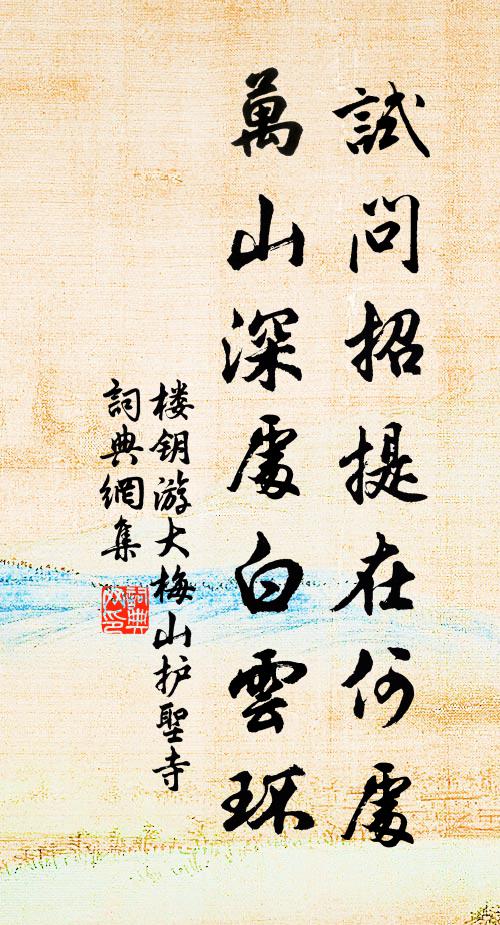 試問招提在何處
萬山深處白雲环
楼钥游大梅山护聖寺
詞典網集